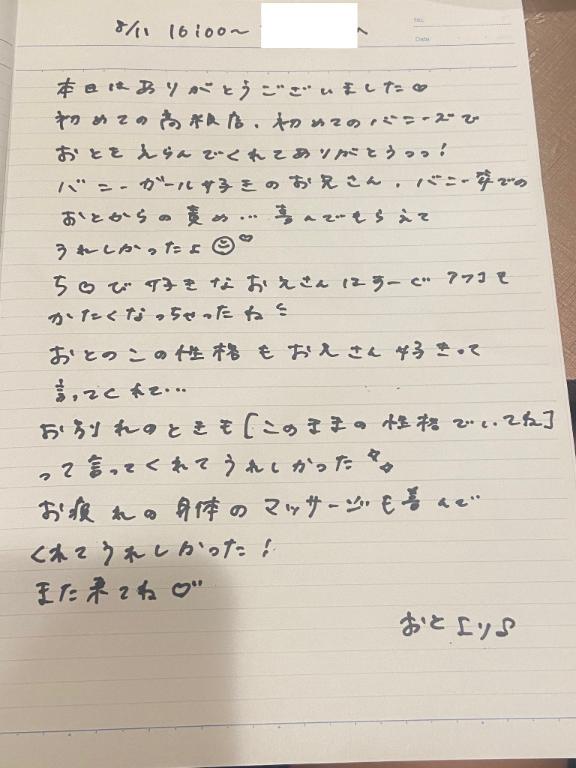 8/11 16:00〜 へ
No.
Date
本日はありがとうございました♡
初めての高級店、初めてのバニーズで
おとをえらんでくれてありがとうっっ!
バニーガール好きのお兄さん、バニー姿での
おとからの責め…喜んでもらえて
うれしかったよ☺♡
ち♡び好きなおえさんはすーぐアソコを
かたくなっちゃったね
おとのこの性格もお兄さん好きって
言ってくれて…
お別れのときも[このままの性格でいてね]
って言ってくれてうれしかった✨
お疲れの身体のマッサージも喜んで
くれてうれしかった!
また来てね♡"
おとより♪